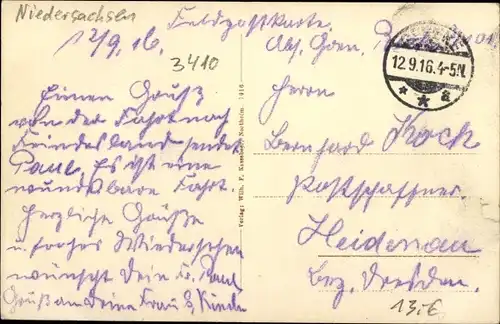 Niedersachsen
Feldpostkarte.
12/9.16.
3410
Abs. Gren.
12.9.16.4-5N.
* * a
Einen Gruß
von der Fahrt nach
Feindesland sendet
Paul. Es ist eine
wunderbare Fahrt.
Herzliche Grüße
u. frohes Wiedersehen
wünscht Dein Fr. Paul
Gruß an Deine Frau & Kinder
Verlag: Wilh. F. Northeim. 1916
Herrn
Bernhard Koch
Postschaffner.
Heidenau
Bez. Dresden.
13.€